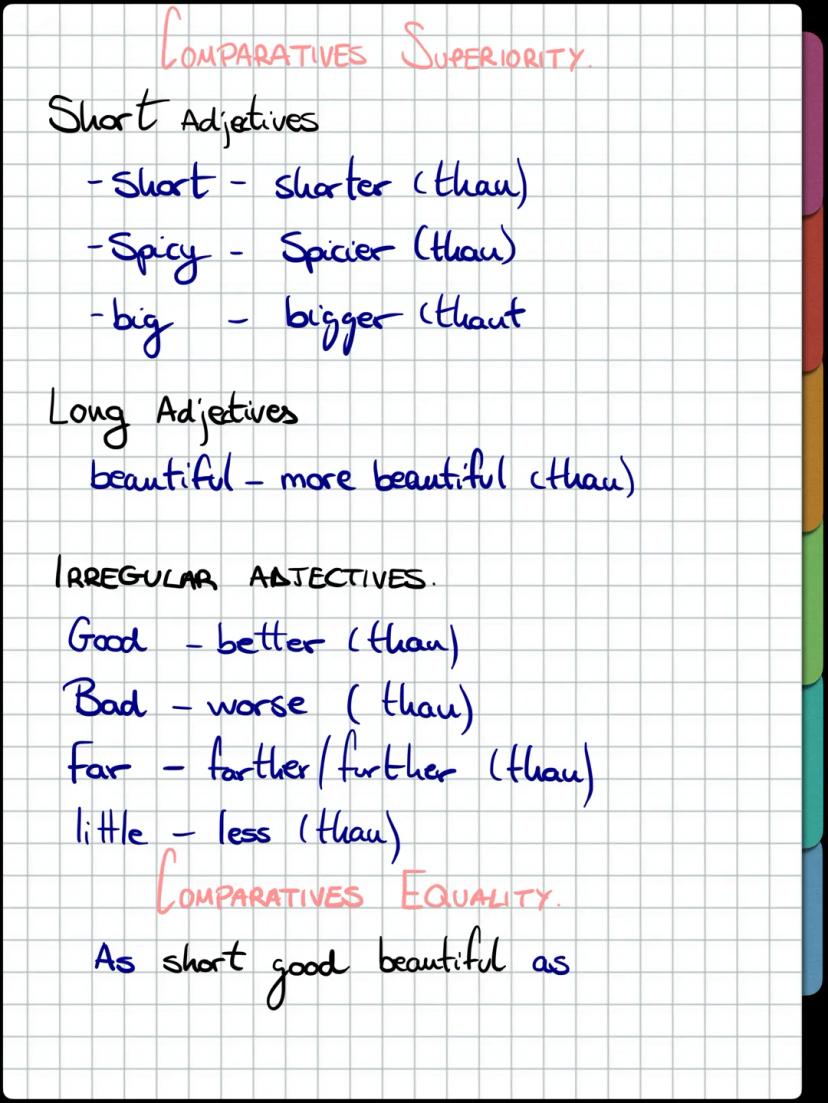 COMPARATIVES SUPERIORITY.
Short Adjectives
- Short - shorter (than)
- Spicy - Spicier (than)
- big - bigger (thant
Long Adjectives
beautiful - more beautiful (than)
IRREGULAR ADJECTIVES.
Good - better (than)
Bad - worse (than)
Far - farther/further (than)
little - less (than)
COMPARATIVES EQUALITY.
As short good beautiful as